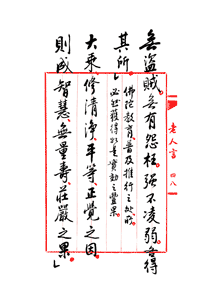 老人言 四八
無盜賊。無有怨枉。強不凌弱。各得
其所」
佛陀教育普及推行之處所
必然獲得如是之豐果。
大乘修清淨平等正覺之因
則成智慧、無量壽、莊嚴之果。」